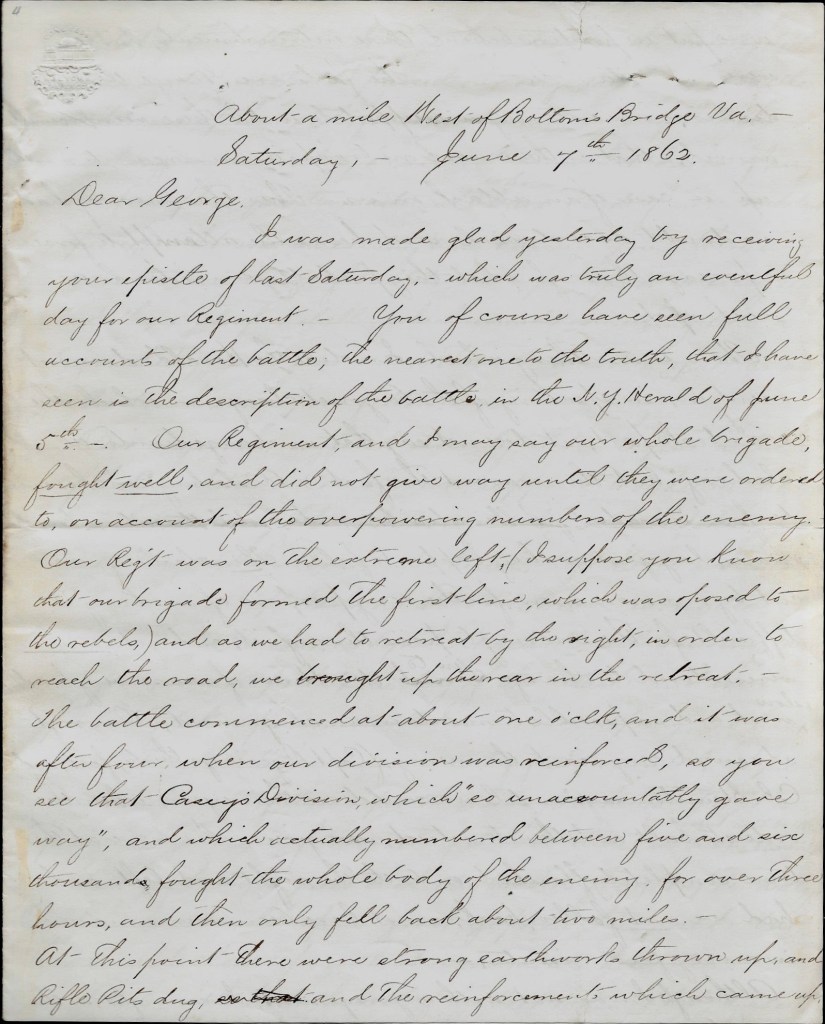 About a mile West of Bottom's Bridge Va. –
Saturday, – June 7th 1862.
Dear George.
I was made glad yesterday by receiving
your epistle of last Saturday, – which was truly an eventful
day for our Regiment. – You of course have seen full
accounts of the battle, the nearest one to the truth, that I have
seen is the description of the battle in the N.Y. Herald of June
5th –. Our Regiment, and I may say our whole brigade,
fought well, and did not give way until they were ordered
to, on account of the overpowering numbers of the enemy. –
Our Reg't was on the extreme left, (I suppose you know
that our brigade formed the first line, which was oposed to
the rebels,) and as we had to retreat by the right, in order to
reach the road, we brought up the rear in the retreat. –
The battle commenced at about one o'clk, and it was
after four, when our division was reinforced, so you
see that Casey's Division, which "so unaccountably gave
way", and which actually numbered between five and six
thousand, fought the whole body of the enemy, for over three
hours, and then only fell back about two miles. –
At this point there were strong earthworks thrown up, and
Rifle Pits dug, so that and the reinforcements which came up,